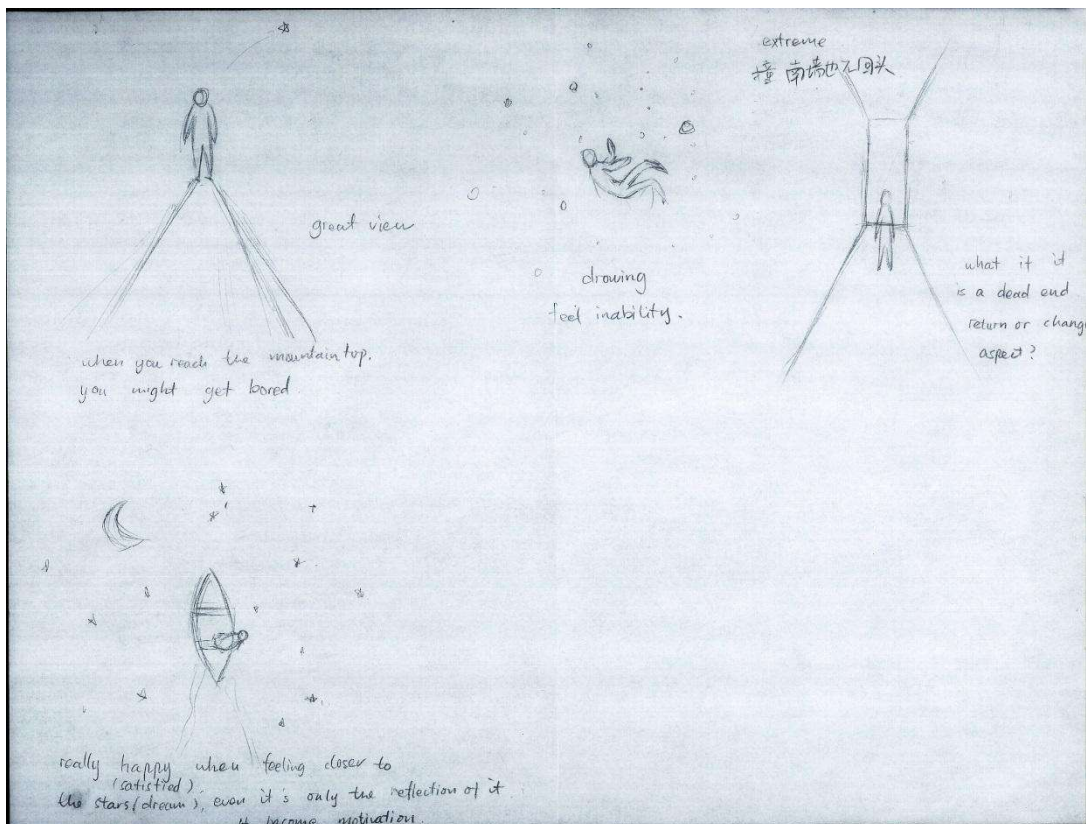 great view
when you reach the mountain top.
you might get bored
drowing
feel inability.
extreme
撞南墙也不回头
what it it
is a dead end
return or change
aspect?
really happy when feeling closer to
(satisfied).
the stars(dream), even it's only the reflection of it
it become motivation.